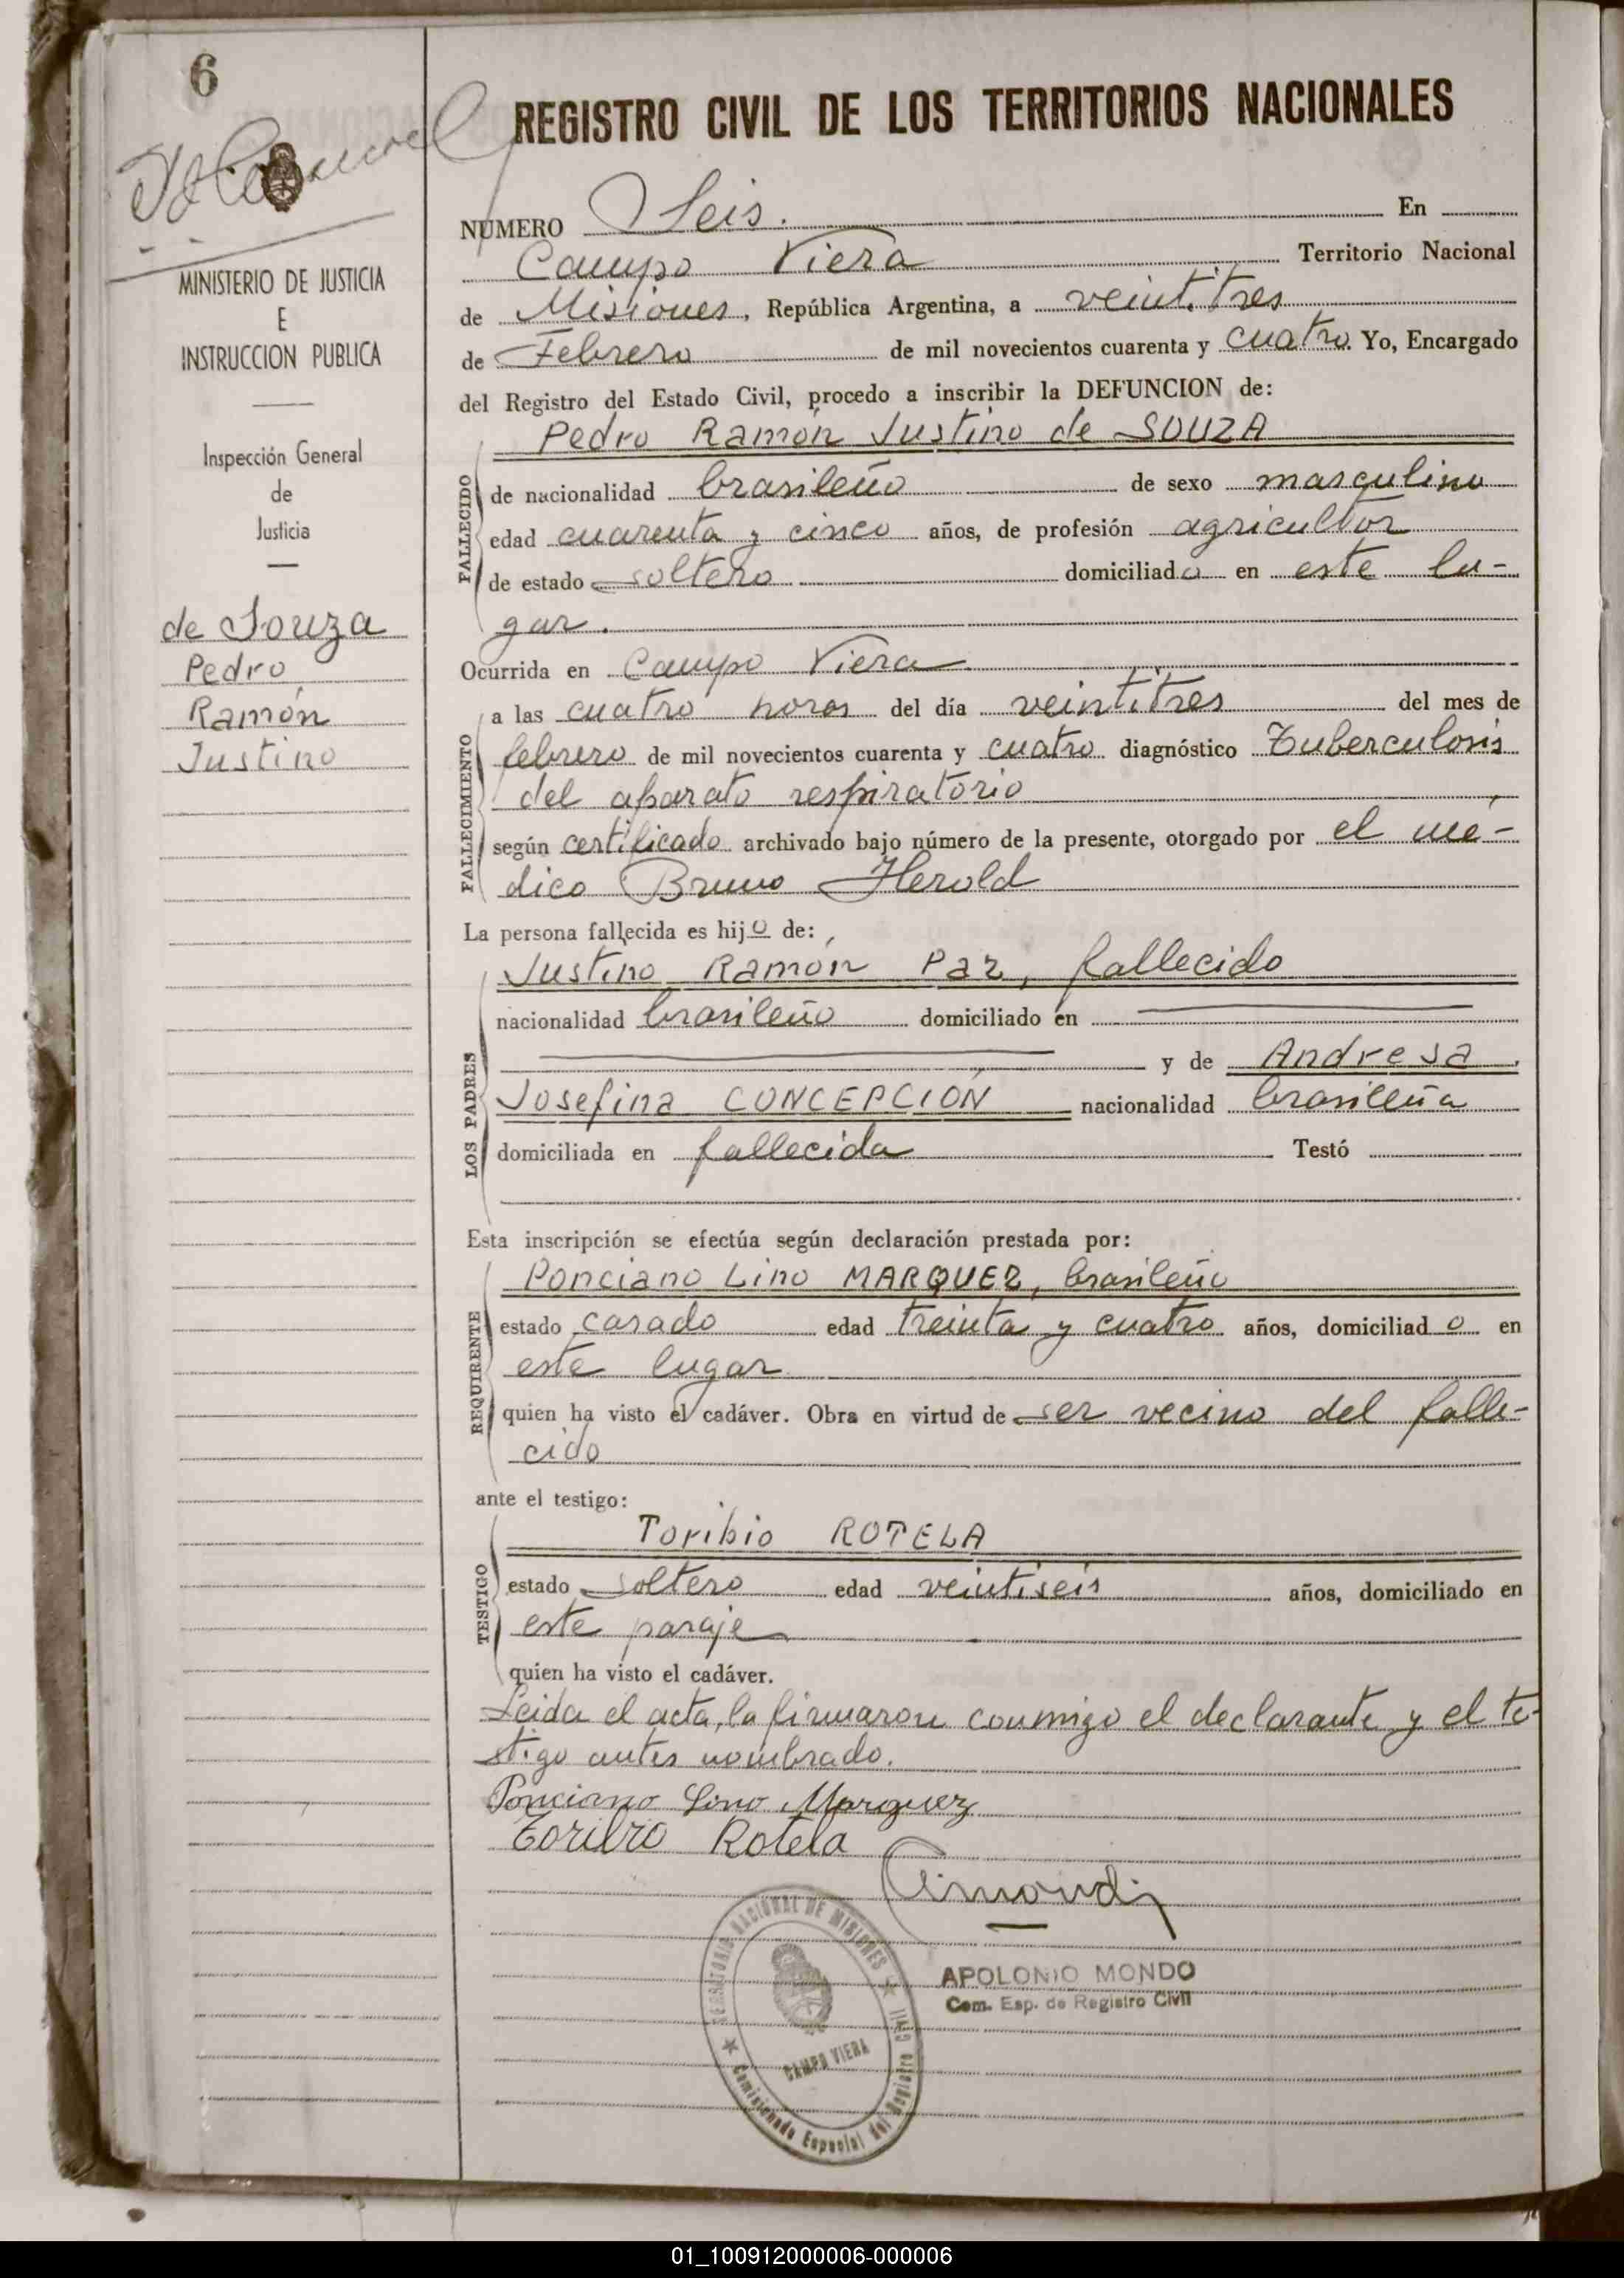 6
REGISTRO CIVIL DE LOS TERRITORIOS NACIONALES
MINISTERIO DE JUSTICIA
E
INSTRUCCION PUBLICA
Inspección General
de
Justicia
de Souza
Pedro
Ramón
Justino
NUMERO Seis. En
Campo Viera Territorio Nacional
de Misiones, República Argentina, a veintitres
de Febrero de mil novecientos cuarenta y cuatro Yo, Encargado
del Registro del Estado Civil, procedo a inscribir la DEFUNCION de:
Pedro Ramón Justino de SOUZA
FALLECIDO
de nacionalidad brasileño de sexo masculino
edad cuarenta y cinco años, de profesión agricultor
de estado soltero domiciliado en este lu-
gar.
Ocurrida en Campo Viera
FALLECIMIENTO
a las cuatro horas del día veintitres del mes de
febrero de mil novecientos cuarenta y cuatro diagnóstico Tuberculosis
del aparato respiratorio
según certificado archivado bajo número de la presente, otorgado por el mé-
dico Bruno Herold
La persona fallecida es hijo de:
LOS PADRES
Justino Ramón Paz, fallecido
nacionalidad brasileño domiciliado en
y de Andresa
Josefina CONCEPCIÓN nacionalidad brasileña
domiciliada en fallecida Testó
Esta inscripción se efectúa según declaración prestada por:
REQUIRENTE
Ponciano Lino MARQUEZ, brasileño
estado casado edad treinta y cuatro años, domiciliado en
este lugar
quien ha visto el cadáver. Obra en virtud de ser vecino del falle-
cido
ante el testigo:
TESTIGO
Toribio ROTELA
estado soltero edad veintiseis años, domiciliado en
este paraje
quien ha visto el cadáver.
Leida el acta, la firmaron conmigo el declarante y el te-
stigo antes nombrado.
Ponciano Lino Marquez
Toribio Rotela
TERRITORIO NACIONAL DE MISIONES
CAMPO VIERA
Comisionado Especial del Registro Civil
APOLONIO MONDO
Com. Esp. de Registro Civil
01_100912000006-000006